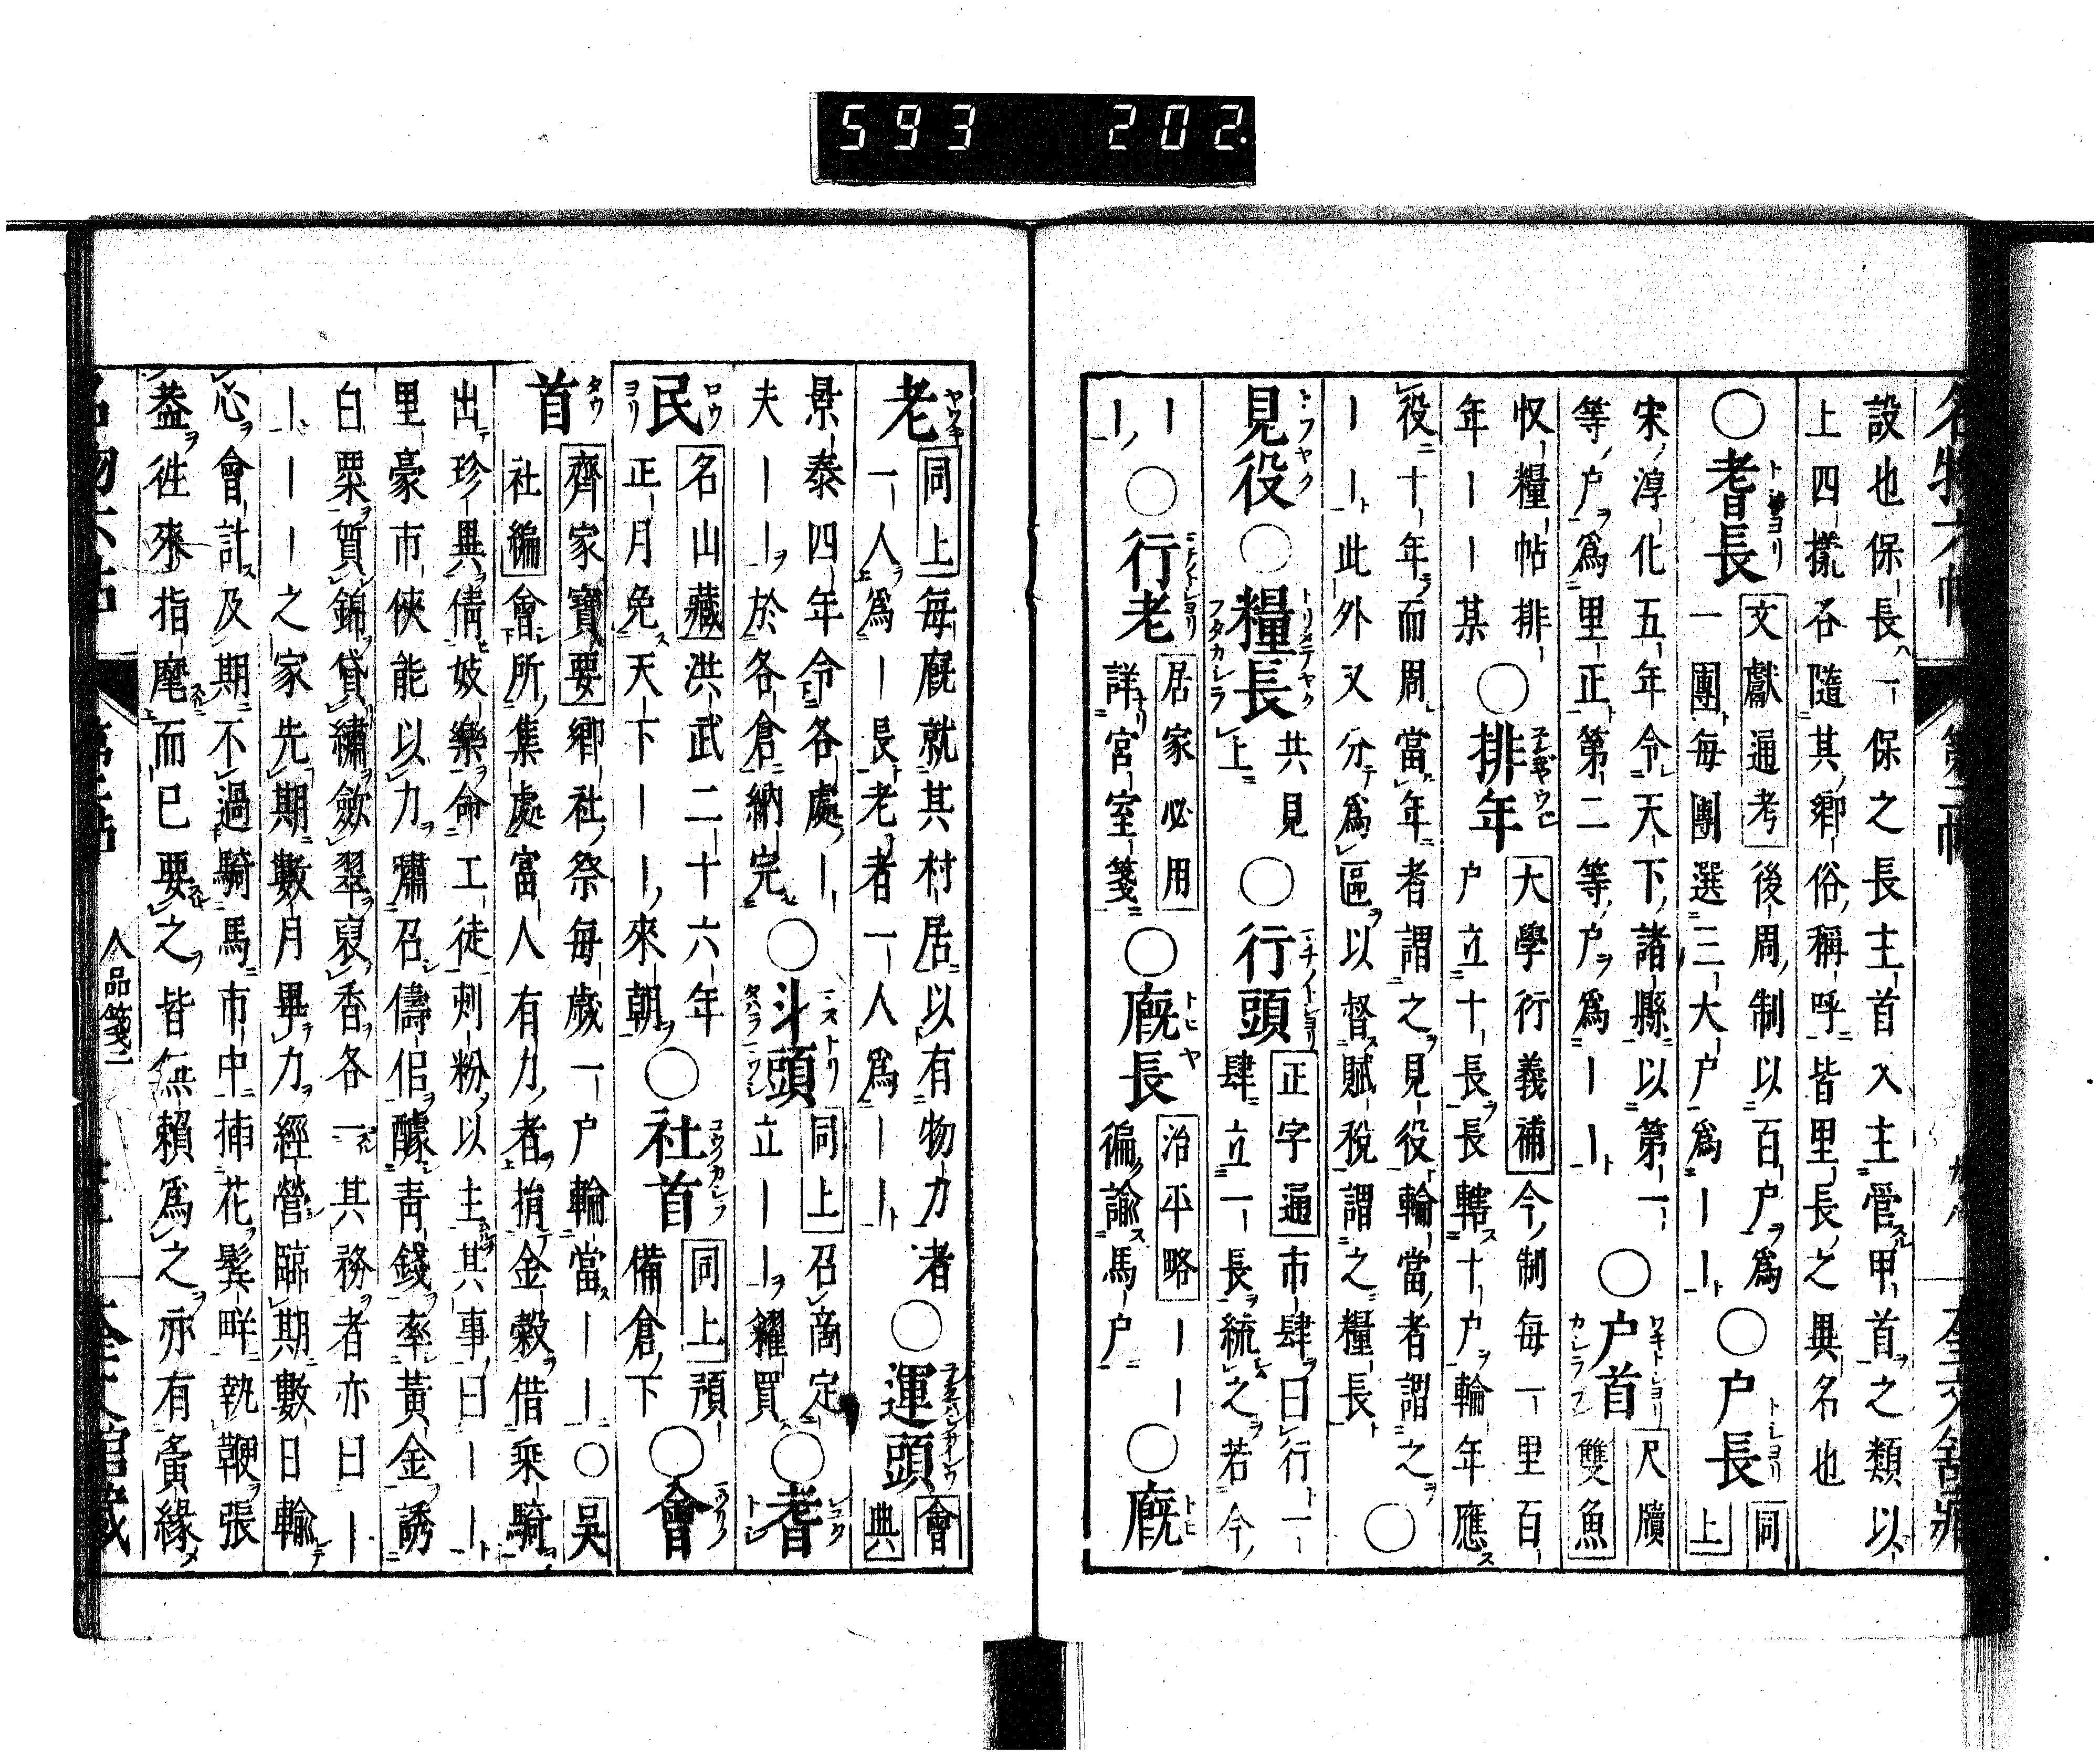 593 202.
設也保長一保之長主首入主管甲首之類以
上四樣各隨其鄉俗稱呼皆里長之異名也
○耆長 文獻通考 後周制以百户爲
一團每團選三大户爲｜｜ ○户長 同上
宋淳化五年令天下諸縣以第一
等户爲里正第二等户爲｜｜ ○户首 尺牘雙魚
収糧帖排
年｜｜某 ○排年 大學行義補 今制每一里百
户立十長長轄十户輪年應
役十年而周當年者謂之見役輪當者謂之
｜｜此外又分爲區以督賦稅謂之糧長 ○
見役 ○糧長 共見上 ○行頭 正字通 市肆曰行一
肆立一長統之若今
｜｜ ○行老 居家必用 詳宮室箋 ○廐長 治平略 ｜｜
徧諭馬户 ○廐
老 同上 每廐就其村居以有物力者
一人爲｜長老者一人爲｜｜ ○運頭 會典
景泰四年令各處｜
夫｜｜於各倉納完 ○斗頭 同上 召商定
立｜｜糴買 ○耆
民 名山藏 洪武二十六年
正月免天下｜｜來朝 ○社首 同上 預
備倉下 ○會
首 齊家寶要 鄉社祭每歲一户輪當｜｜ ○吳
社編 會所集處富人有力者捐金穀借乘騎
出珍異倩妓樂命工徒刺粉以主其事曰｜｜
里豪市俠能以力嘯召儔侶醵青錢率黃金誘
白粟質錦貸繡斂翠裒香各一其務者亦曰｜
｜｜｜之家先期數月畢力經營臨期數日輪
心會計及期不過騎馬市中插花鬂畔執鞭張
蓋徃來指麾而已要之皆無賴爲之亦有夤緣
人品箋二